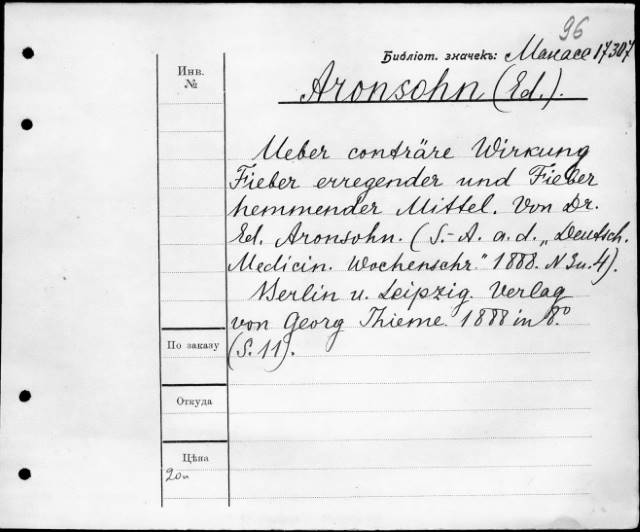 96
Библіот. значекъ: Манасе 17307
Инв.
№
Aronsohn (Ed.).
Ueber conträre Wirkung
Fieber erregender und Fieber
hemmender Mittel. Von Dr.
Ed. Aronsohn. (S.-A. a. d. „Deutsch.
Medicin. Wochenschr." 1888. N 3 u. 4).
Berlin u. Leipzig. Verlag
von Georg Thieme. 1888 in 8°.
(S. 11).
По заказу
Откуда
Цѣна